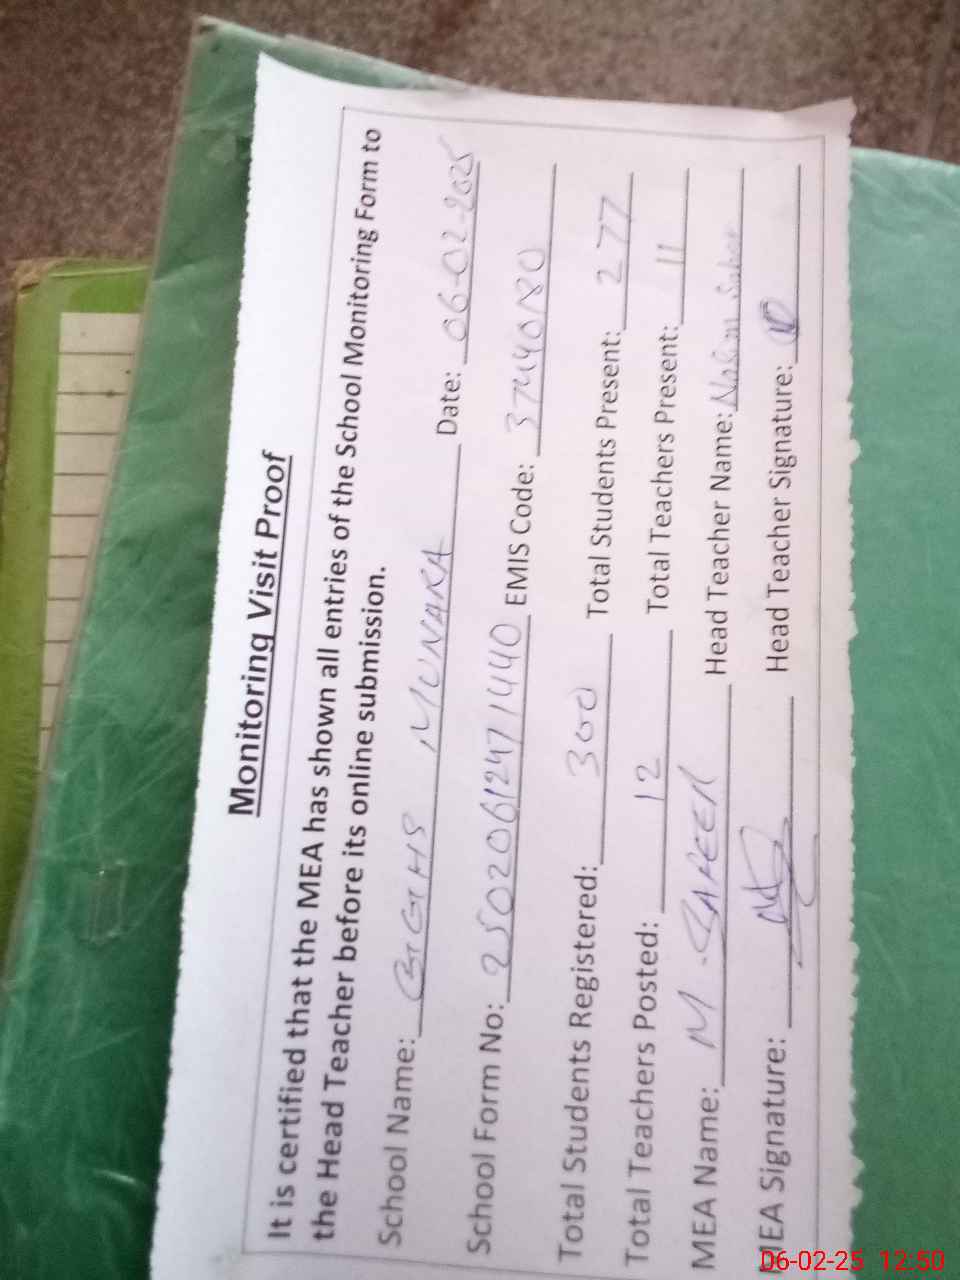 Monitoring Visit Proof
It is certified that the MEA has shown all entries of the School Monitoring Form to
the Head Teacher before its online submission.
School Name: GGHS MUNARA Date: 06-02-2025
School Form No: 25020612471440 EMIS Code: 37440180
Total Students Registered: 300 Total Students Present: 277
Total Teachers Posted: 12 Total Teachers Present: 11
MEA Name: M. Head Teacher Name:
MEA Signature: Head Teacher Signature:
06-02-25 12:50